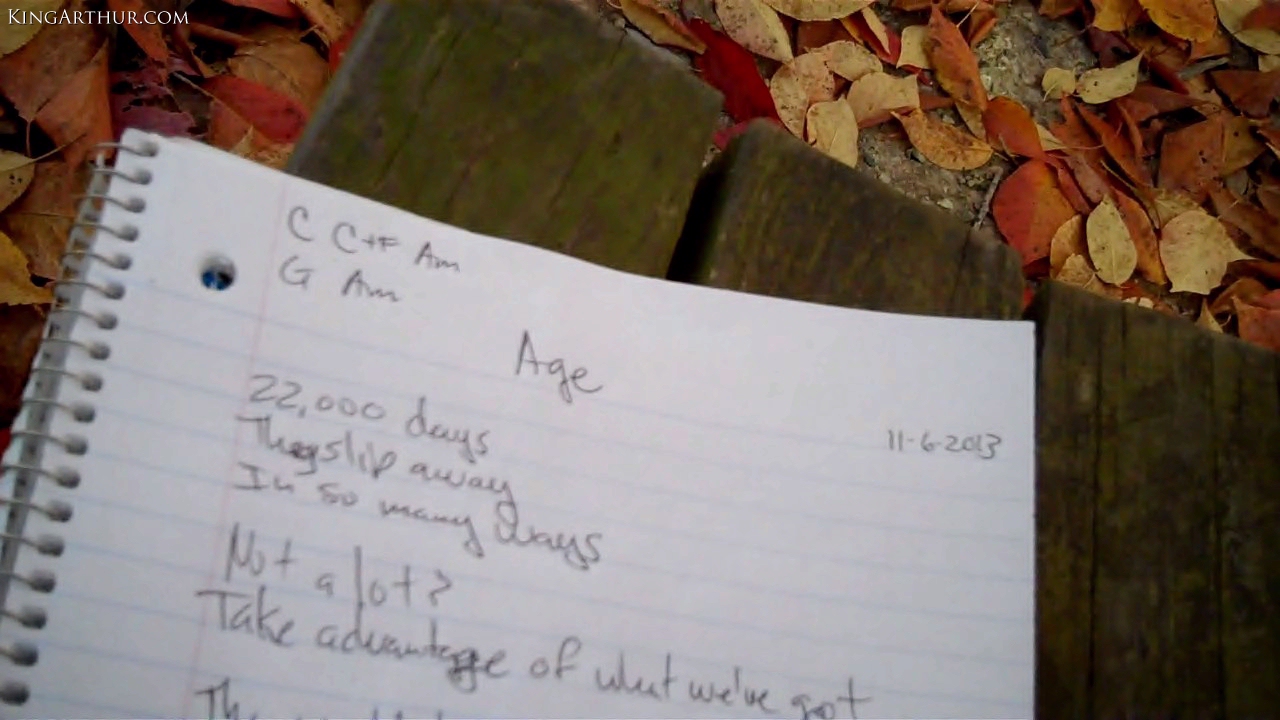 KINGARTHUR.COM
C C+F Am
G Am
Age
11-6-2013
22,000 days
They slip away
In so many ways
Not a lot?
Take advantage of what we've got
The